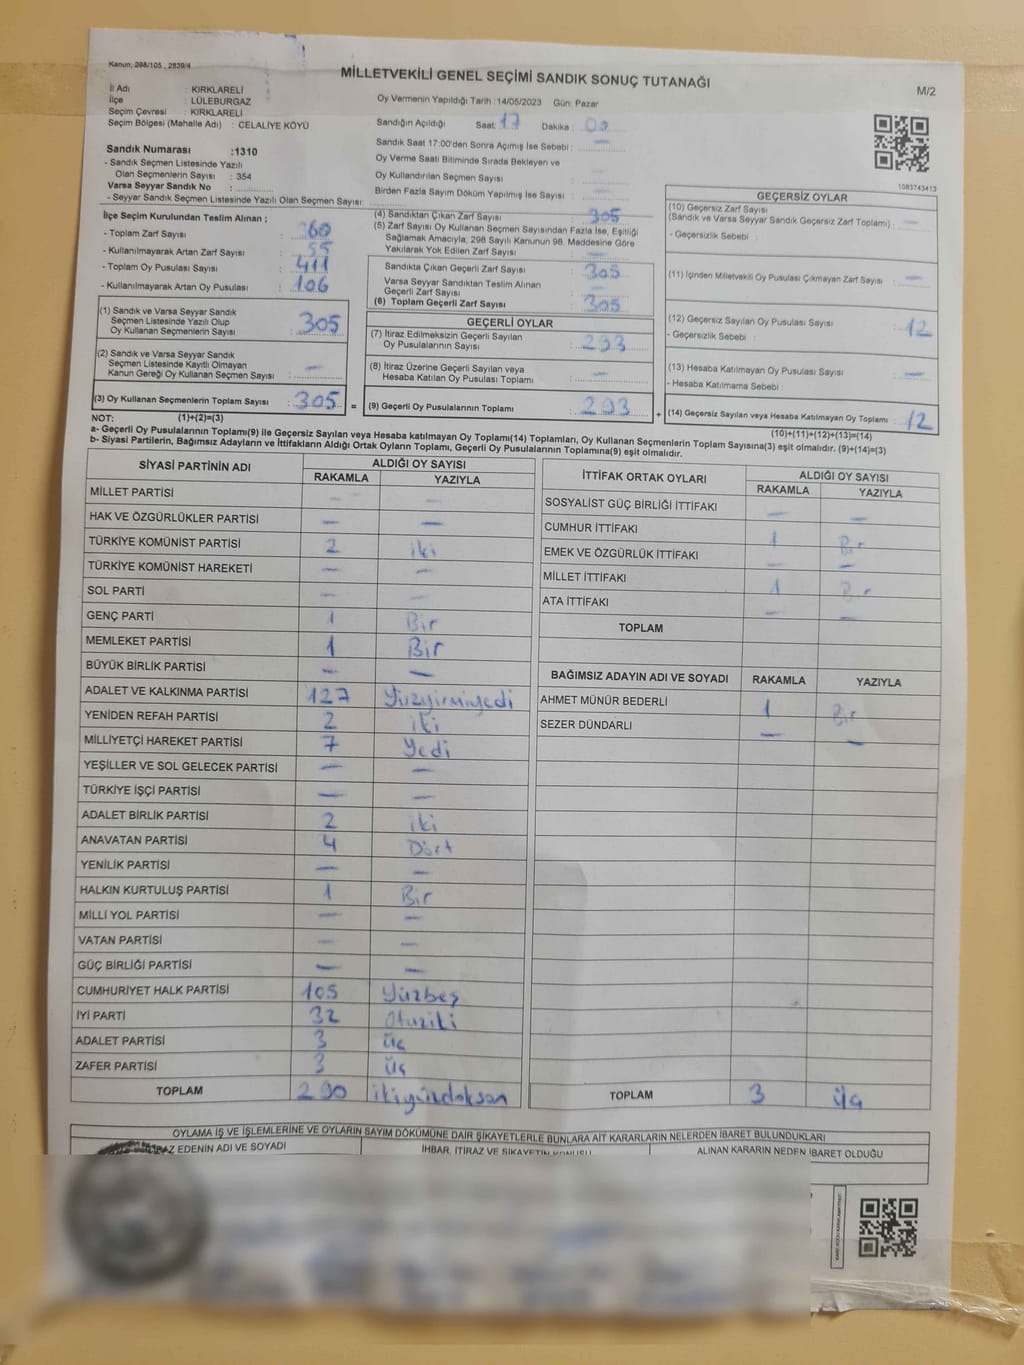 Kanun: 298/105 , 2839/4
MİLLETVEKİLİ GENEL SEÇİMİ SANDIK SONUÇ TUTANAĞI
M/2
İl Adı : KIRKLARELİ
İlçe : LÜLEBURGAZ
Seçim Çevresi : KIRKLARELİ
Seçim Bölgesi (Mahalle Adı) : CELALİYE KÖYÜ
Oy Vermenin Yapıldığı Tarih :14/05/2023 Gün: Pazar
Sandığın Açıldığı Saat: 17 Dakika : 00
Sandık Saat 17:00'den Sonra Açımış İse Sebebi : —
Oy Verme Saati Bitiminde Sırada Bekleyen ve
Oy Kullandırılan Seçmen Sayısı :
Birden Fazla Sayım Döküm Yapılmış İse Sayısı :
Sandık Numarası :1310
- Sandık Seçmen Listesinde Yazılı
Olan Seçmenlerin Sayısı : 354
Varsa Seyyar Sandık No :
- Seyyar Sandık Seçmen Listesinde Yazılı Olan Seçmen Sayısı:
1083743413
İlçe Seçim Kurulundan Teslim Alınan ;
- Toplam Zarf Sayısı : 360
- Kullanılmayarak Artan Zarf Sayısı : 55
- Toplam Oy Pusulası Sayısı : 411
- Kullanılmayarak Artan Oy Pusulası : 106
(1) Sandık ve Varsa Seyyar Sandık
Seçmen Listesinde Yazılı Olup
Oy Kullanan Seçmenlerin Sayısı : 305
(2) Sandık ve Varsa Seyyar Sandık
Seçmen Listesinde Kayıtlı Olmayan
Kanun Gereği Oy Kullanan Seçmen Sayısı : —
(3) Oy Kullanan Seçmenlerin Toplam Sayısı : 305 =
(4) Sandıktan Çıkan Zarf Sayısı : 305
(5) Zarf Sayısı Oy Kullanan Seçmen Sayısından Fazla İse, Eşitliği
Sağlamak Amacıyla; 298 Sayılı Kanunun 98. Maddesine Göre
Yakılarak Yok Edilen Zarf Sayısı : —
Sandıkta Çıkan Geçerli Zarf Sayısı : 305
Varsa Seyyar Sandıktan Teslim Alınan
Geçerli Zarf Sayısı : —
(6) Toplam Geçerli Zarf Sayısı : 305
GEÇERLİ OYLAR
(7) İtiraz Edilmeksizin Geçerli Sayılan
Oy Pusulalarının Sayısı : 293
(8) İtiraz Üzerine Geçerli Sayılan veya
Hesaba Katılan Oy Pusulası Toplamı : —
(9) Geçerli Oy Pusulalarının Toplamı : 293 +
GEÇERSİZ OYLAR
(10) Geçersiz Zarf Sayısı
(Sandık ve Varsa Seyyar Sandık Geçersiz Zarf Toplamı) : —
- Geçersizlik Sebebi :
(11) İçinden Milletvekili Oy Pusulası Çıkmayan Zarf Sayısı : —
(12) Geçersiz Sayılan Oy Pusulası Sayısı : 12
- Geçersizlik Sebebi :
(13) Hesaba Katılmayan Oy Pusulası Sayısı : —
- Hesaba Katılmama Sebebi :
(14) Geçersiz Sayılan veya Hesaba Katılmayan Oy Toplamı : 12
NOT: (1)+(2)=(3)
(10)+(11)+(12)+(13)=(14)
a- Geçerli Oy Pusulalarının Toplamı(9) ile Geçersiz Sayılan veya Hesaba katılmayan Oy Toplamı(14) Toplamları, Oy Kullanan Seçmenlerin Toplam Sayısına(3) eşit olmalıdır. (9)+(14)=(3)
b- Siyasi Partilerin, Bağımsız Adayların ve İttifakların Aldığı Ortak Oyların Toplamı, Geçerli Oy Pusulalarının Toplamına(9) eşit olmalıdır.
SİYASİ PARTİNİN ADI ALDIĞI OY SAYISI
RAKAMLA YAZIYLA
MİLLET PARTİSİ — —
HAK VE ÖZGÜRLÜKLER PARTİSİ — —
TÜRKİYE KOMÜNİST PARTİSİ 2 iki
TÜRKİYE KOMÜNİST HAREKETİ — —
SOL PARTİ — —
GENÇ PARTİ 1 Bir
MEMLEKET PARTİSİ 1 Bir
BÜYÜK BİRLİK PARTİSİ — —
ADALET VE KALKINMA PARTİSİ 127 Yüzyirmiyedi
YENİDEN REFAH PARTİSİ 2 iki
MİLLİYETÇİ HAREKET PARTİSİ 7 Yedi
YEŞİLLER VE SOL GELECEK PARTİSİ — —
TÜRKİYE İŞÇİ PARTİSİ — —
ADALET BİRLİK PARTİSİ 2 iki
ANAVATAN PARTİSİ 4 Dört
YENİLİK PARTİSİ — —
HALKIN KURTULUŞ PARTİSİ 1 Bir
MİLLİ YOL PARTİSİ — —
VATAN PARTİSİ — —
GÜÇ BİRLİĞİ PARTİSİ — —
CUMHURİYET HALK PARTİSİ 105 Yüzbeş
İYİ PARTİ 32 Otuziki
ADALET PARTİSİ 3 üç
ZAFER PARTİSİ 3 üç
TOPLAM 290 ikiyüzdoksan
İTTİFAK ORTAK OYLARI ALDIĞI OY SAYISI
RAKAMLA YAZIYLA
SOSYALİST GÜÇ BİRLİĞİ İTTİFAKI — —
CUMHUR İTTİFAKI 1 Bir
EMEK VE ÖZGÜRLÜK İTTİFAKI — —
MİLLET İTTİFAKI 1 Bir
ATA İTTİFAKI — —
TOPLAM
BAĞIMSIZ ADAYIN ADI VE SOYADI RAKAMLA YAZIYLA
AHMET MÜNÜR BEDERLİ 1 Bir
SEZER DÜNDARLI — —
TOPLAM 3 üç
OYLAMA İŞ VE İŞLEMLERİNE VE OYLARIN SAYIM DÖKÜMÜNE DAİR ŞİKAYETLERLE BUNLARA AİT KARARLARIN NELERDEN İBARET BULUNDUKLARI
EDENİN ADI VE SOYADI İHBAR, İTİRAZ VE ŞİKAYETİN KONUSU ALINAN KARARIN NEDEN İBARET OLDUĞU